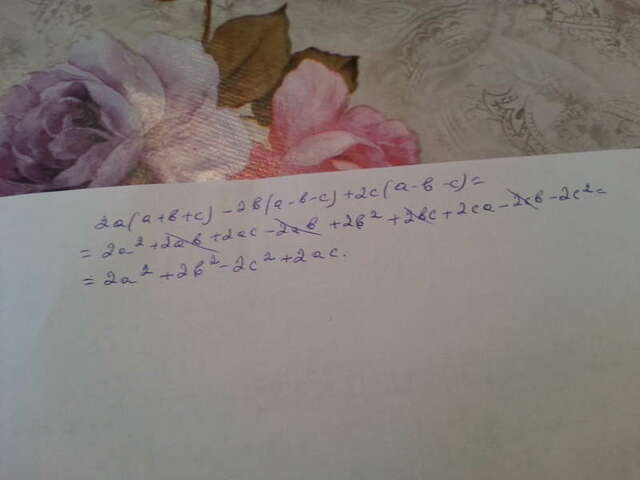 2a(a+b+c)-2b(a-b-c)+2c(a-b-c)=
=2a²+2ab+2ac-2ab+2b²+2bc+2ca-2cb-2c²=
=2a²+2b²-2c²+2ac.